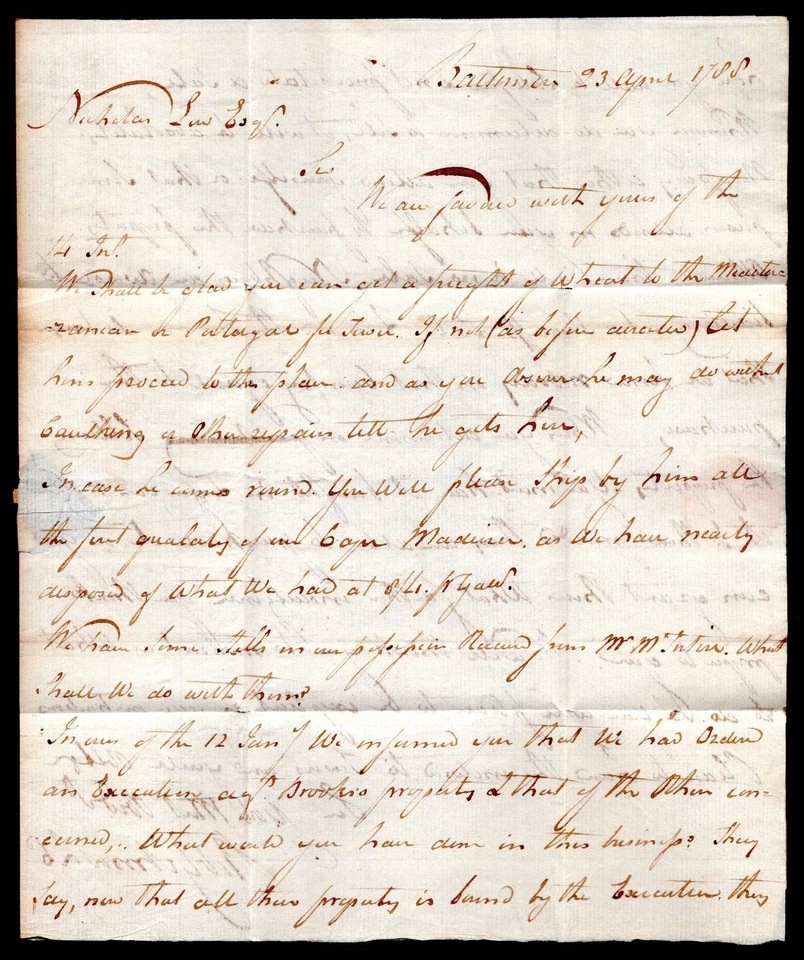 Baltimore 23 April 1788.
Nicholas Low Esqr.
Sir
We are favour with yours of the
14 Inst.
We Shall be glad you can get a freight of Wheat to the Mediter=
=ranean or Portugal for. If not (as before directed) let
him proceed to this place. and as you Observe he may do without
Caulking or Other repairs till he gets here,
In case he comes round. You Will please Ship by him all
the first quality of our Cargo Madeira. as We have nearly
disposed of What We had at 8/4. pr Gallo.
We have Some Stills in our possession Received from Mr. McIntire. What
Shall We do with them?
In ours of the 12 Jany We informed you that We had Orderd
an Execution agt. Brookes property & that of the Other con=
cerned,. What would you have done in this business? They
Say, now that all their property is bound by the Execution they